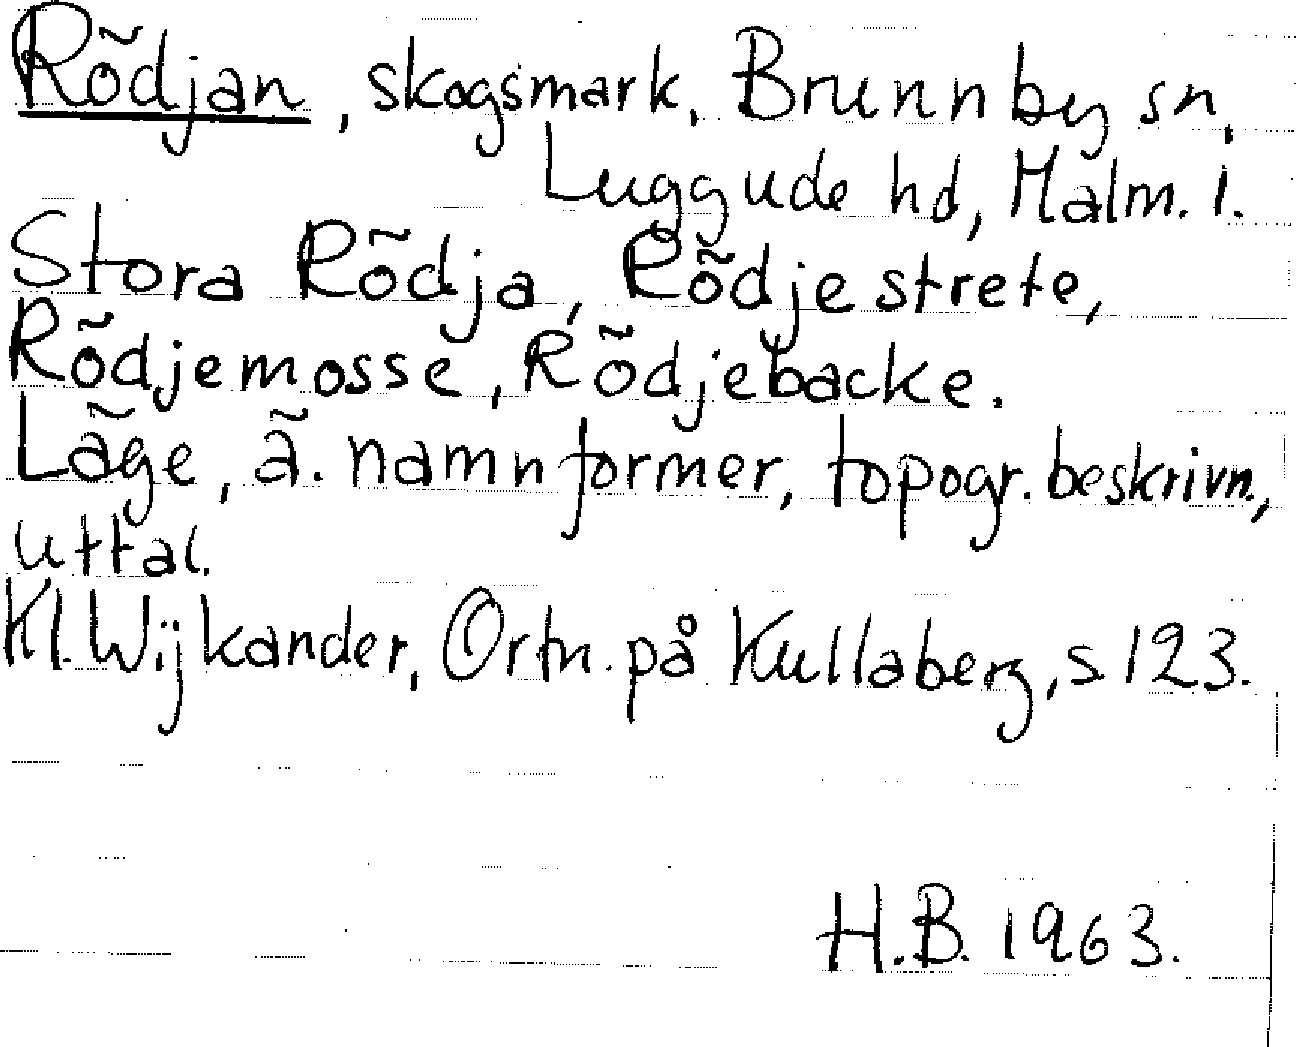 Rödjan, skogsmark, Brunnby sn,
Luggude hd, Malm. l.
Stora Rödja, Rödjestrete,
Rödjemosse, Rödjebacke.
Läge, ä. namnformer, topogr. beskrivn.,
uttal.
Kl. Wijkander, Ortn. på Kullaberg, s 123.
H.B. 1963.